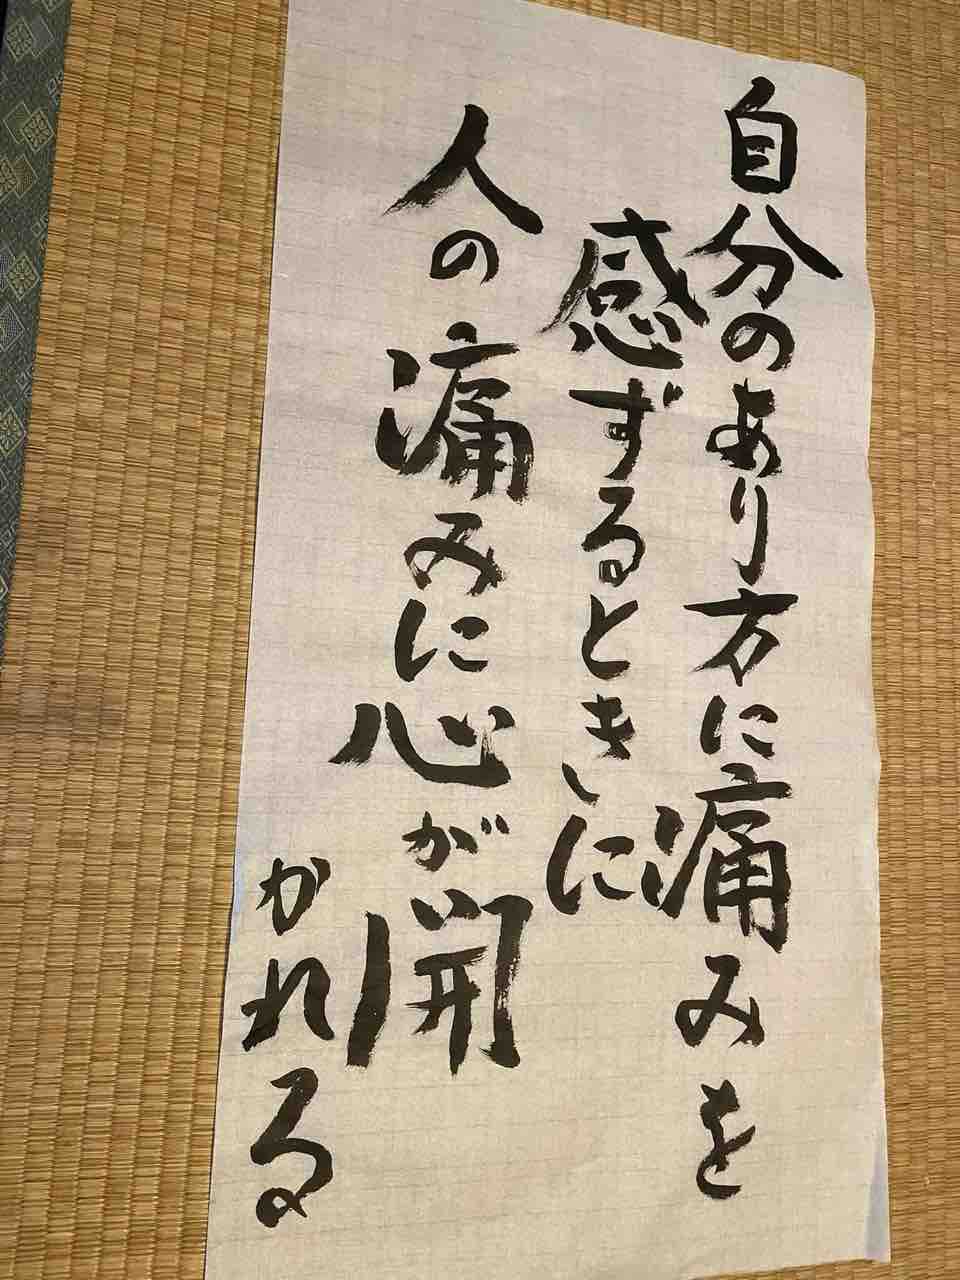 自分のあり方に痛みを
感ずるときに
人の痛みに心が開
かれる